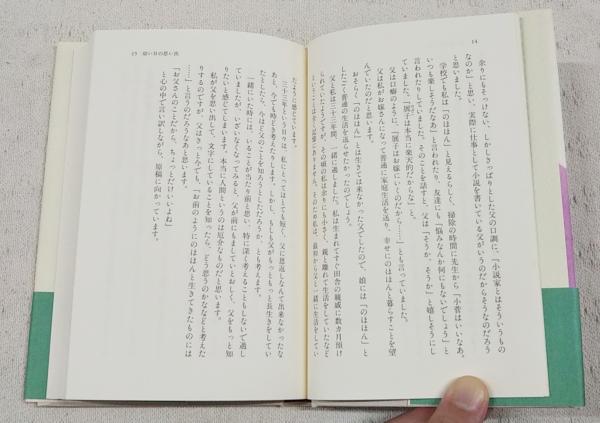 14
余りにもそっけない、しかしきっぱりとした父の口調に、「小説家とはそういうもの
なのか」と思い、実際に仕事として小説を書いている父がいうのだからそうなのだろう
と思いました。
学校でも私は「のほほん」と見えるらしく、掃除の時間に先生から「小菅はいいなあ。
いつも楽しそうだなあ」と言われたり、友達にも「悩みなんか何にもないでしょう」と
言われたりしていました。そのことを話すと、父は「そうか、そうか」と嬉しそうにし
ていました。「展子は本当に楽天的だからな」と。
父は口癖のように、「展子はお嫁にいくのだから……」とも言っていました。
父は私がお嫁さんになって普通に家庭生活を送り、幸せにのほほんと暮らすことを望
んでいたのだと思います。
おそらく「のほほん」とは生きては来なかった父でしたので、娘には「のほほん」と
したごく普通の生活を送らせたかったのでしょう。
父と私は三十三年間、一緒に過しました。私は生まれてすぐ田舎の親戚に数カ月預け
られていたようですが、その頃の私は余りにも小さく、親と離れて生活をしていた
15 幼い日の思い出
たように感じています。
三十三年という日々は、私にとってはとても短く、父に恩返しなんて出来なかったな
あと、今でも時どき考えたりします。しかし、もしも父がもっともっと長生きをしてい
たとしたら、今ほど父のことを知ろうとしただろうか、とも考えます。
一緒にいた時には、いることが当たり前と思い、特に深く考えることもしないで過し
ていましたが、いざいなくなってみると、父が前にもましていとおしく、父をもっと知
りたいと感じてしまいます。本当に人間というのは厄介なものだと思います。
私が父を思い出して、文字にしていることを知ったら、どう思うのかななどと考えた
りするのですが、父はきっと今でも、「お前のようにのほほんと生きてきたものには
……」と言うのだろうなあと思います。
「お父さんのことだから、ちょっとだけいいよね」
と心の中で言い訳しながら、原稿に向かっています。